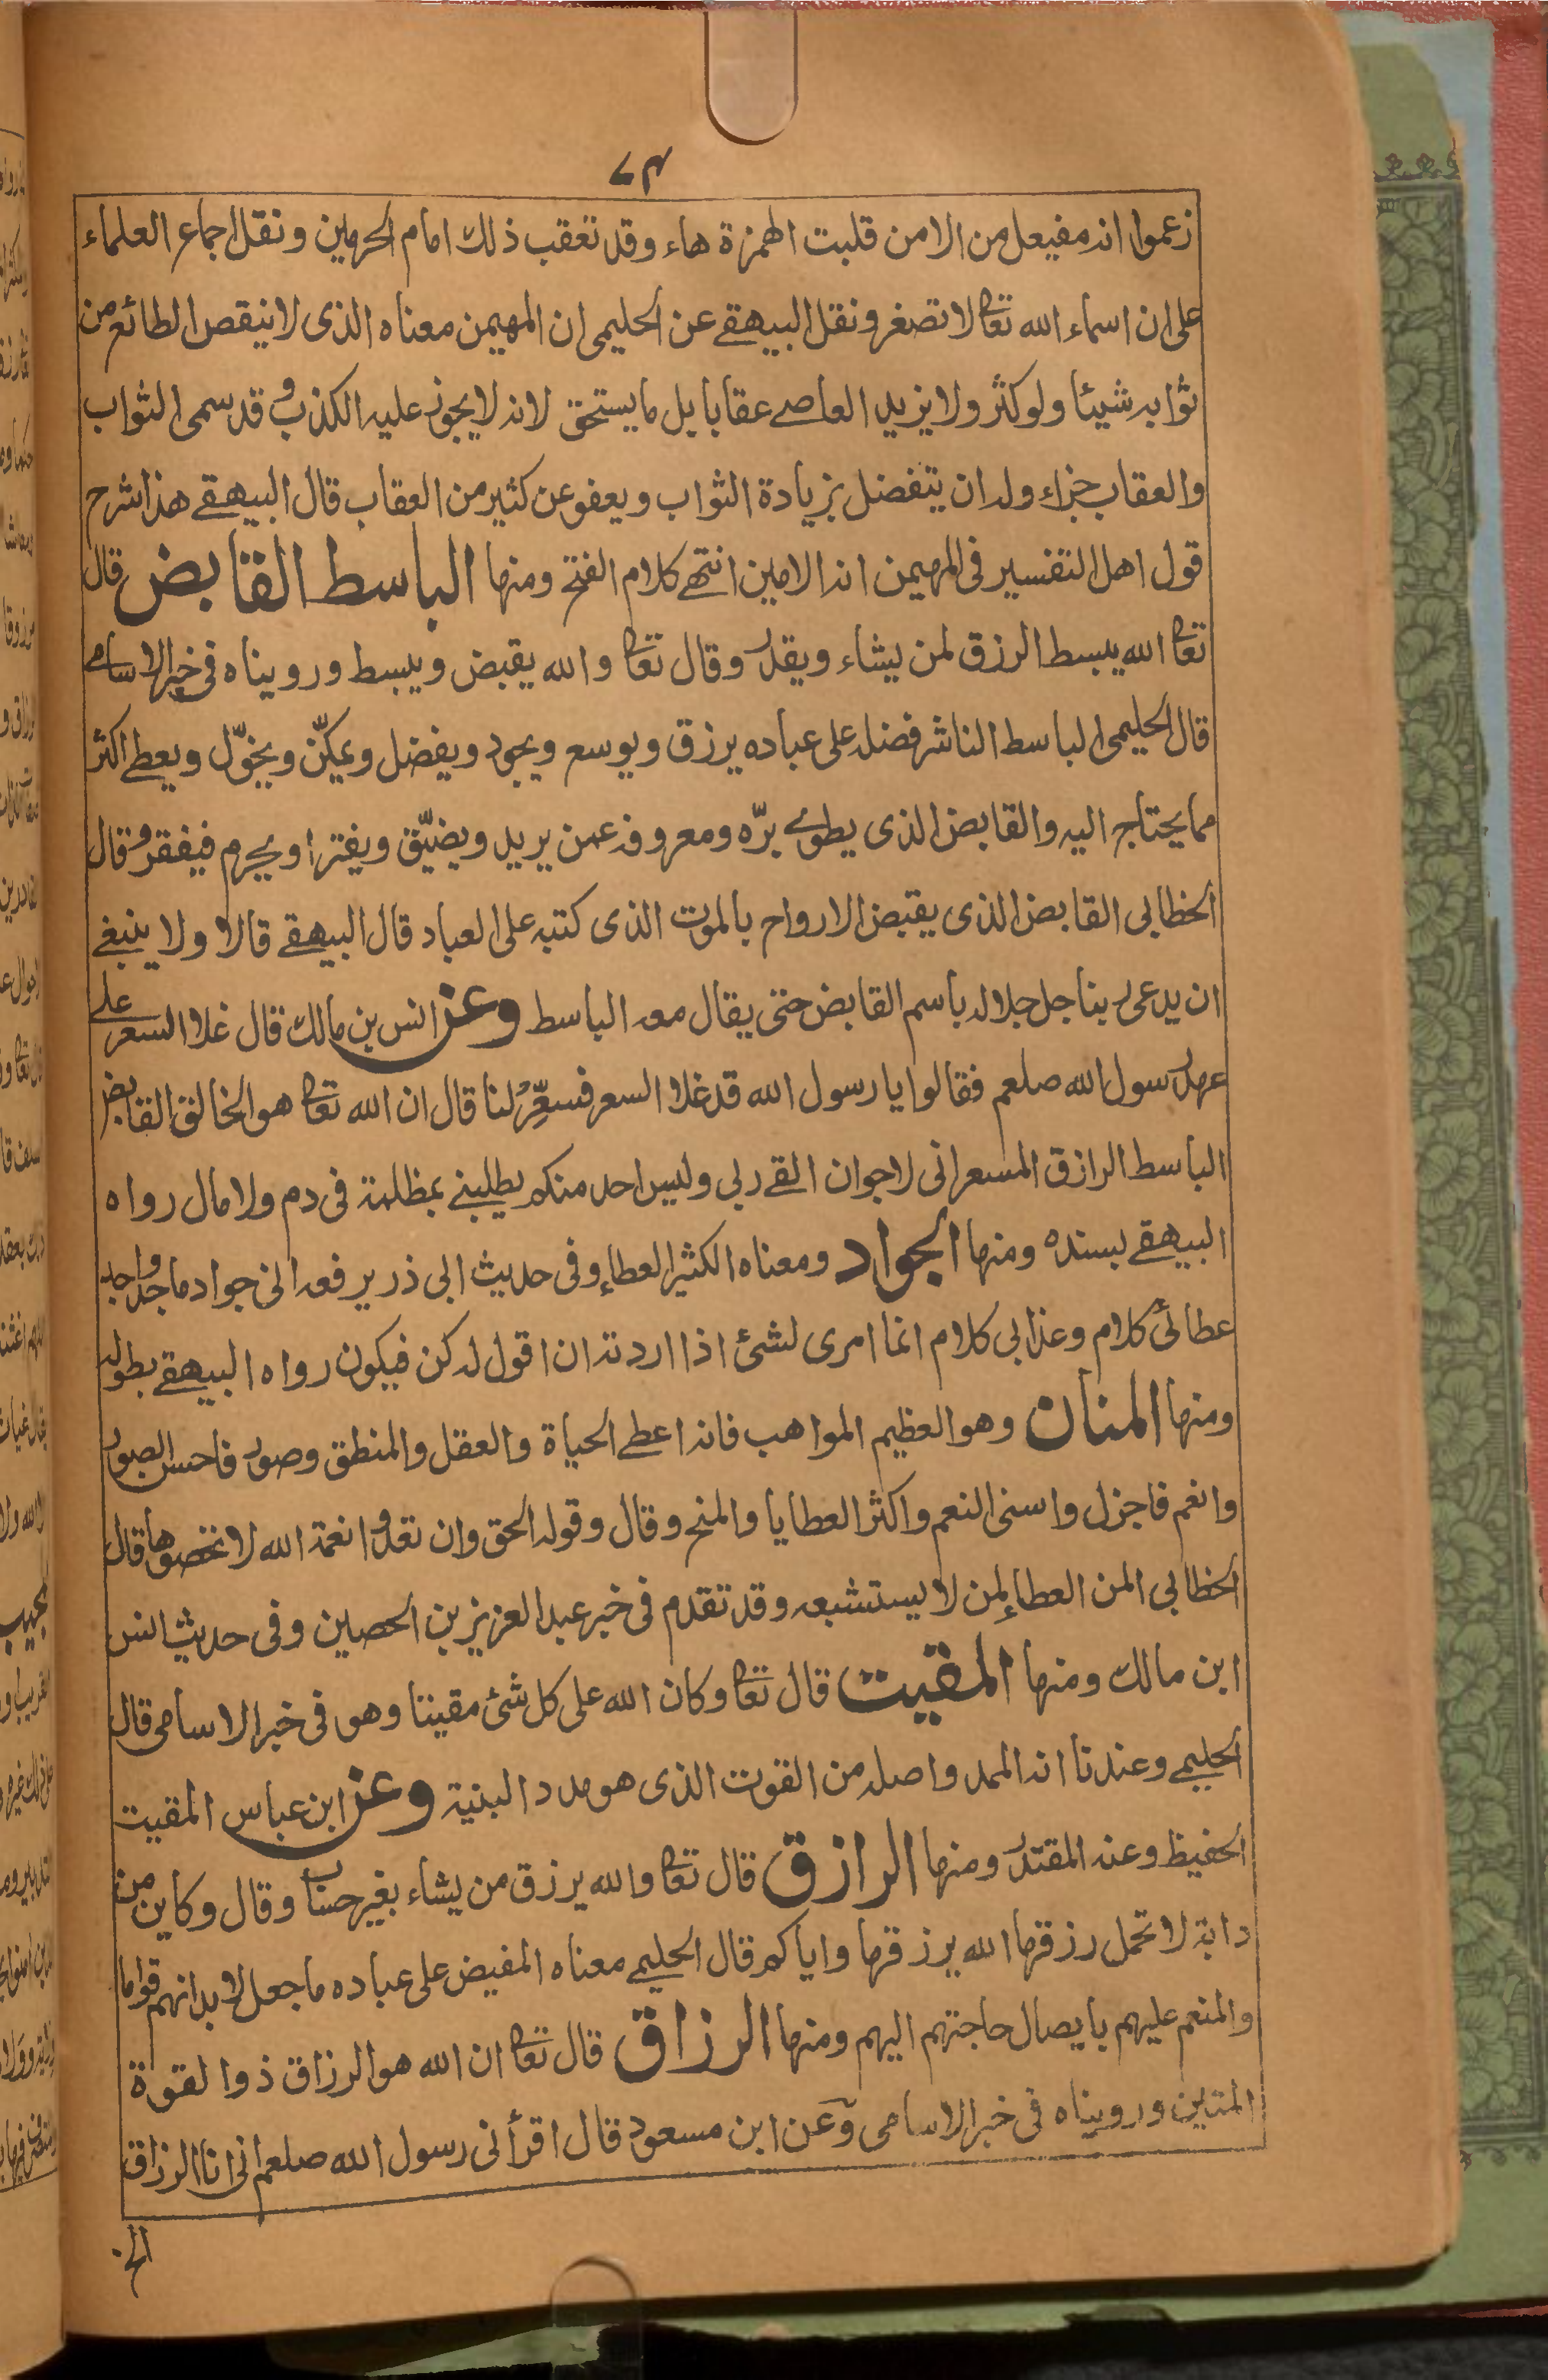 ٧٤
زعموا انه مفيعل من الامن قلبت الهمزة هاء وقد تعقب ذلك امام الحرمين ونقل اجماع العلماء
على ان اسماء الله تعالى لا تصغر ونقل البيهقے عن الحليمی ان المهيمن معناه الذی لا ينقص الطائع من
ثوابه شيئا ولو كثر ولا يزيد العاصے عقابا بل ما يستحق لانه لا يجوز عليه الكذب و قد سمی الثواب
والعقاب جزاء وله ان يتفضل بزيادة الثواب ويعفو عن كثير من العقاب قال البيهقے هذا شرح
قول اهل التفسير فی المهيمن انه الامين انتهے كلام الفتح ومنها الباسط القابض قال
تعالى الله يبسط الرزق لمن يشاء ويقدر وقال تعالى والله يقبض ويبسط ورويناه فی خبر الاسامے
قال الحليمی الباسط الناشر فضله علی عباده يرزق ويوسع ويجود ويفضل ويمكّن ويخوّل ويعطے اكثر
مما يحتاج اليه والقابض الذی يطوے برّه ومعروفه عمن يريد ويضيّق ويقتر او يحرم فيفقر و قال
الخطابی القابض الذی يقبض الارواح بالموت الذی كتبه علی العباد قال البيهقے قالا ولا ينبغے
ان يدعی ربنا جل جلاله باسم القابض حتی يقال معه الباسط وعن انس بن مالك قال غلا السعر علے
عهد رسول الله صلعم فقالوا يا رسول الله قد غلا السعر فسعِّرْ لنا قال ان الله تعالى هو الخالق القابض
الباسط الرازق المسعر انی لاجو ان القے ربی وليس احد منكم يطلبنے بمظلمة فی دم ولا مال رواه
البيهقے بسنده ومنها الجواد ومعناه الكثير العطاء وفی حديث ابی ذر يرفعه انی جواد ماجد واجد
عطائی كلام وعذابی كلام انما امری لشئ اذا اردته ان اقول له كن فيكون رواه البيهقے بطوله
ومنها المنان وهو العظيم المواهب فانه اعطے الحياة والعقل والمنطق وصور فاحسن الصور
وانعم فاجزل واسنی النعم واكثر العطايا والمنح وقال وقوله الحق وان تعدوا نعمة الله لا تحصوها قال
الخطابی المن العطاء لمن لا يستثيبه وقد تقدم فی خبر عبد العزيز بن الحصين وفی حديث انس
ابن مالك ومنها المقيت قال تعالى وكان الله علی كل شئ مقيتا وهو فی خبر الاسامی قال
الحليمے وعندنا انه الممد واصله من القوت الذی هو مدد البنية وعن ابن عباس المقيت
الحفيظ وعنه المقتدر ومنها الرازق قال تعالى والله يرزق من يشاء بغير حساب وقال وكاين من
دابة لا تحمل رزقها الله يرزقها واياكم قال الحليمے معناه المفيض علی عباده ما جعل لابدانهم قواما
والمنعم عليهم بايصال حاجتهم اليهم ومنها الرزاق قال تعالى ان الله هو الرزاق ذوا لقوة
المتين ورويناه فی خبر الاسامی وعن ابن مسعود قال اقرأنی رسول الله صلعم انی انا الرزاق